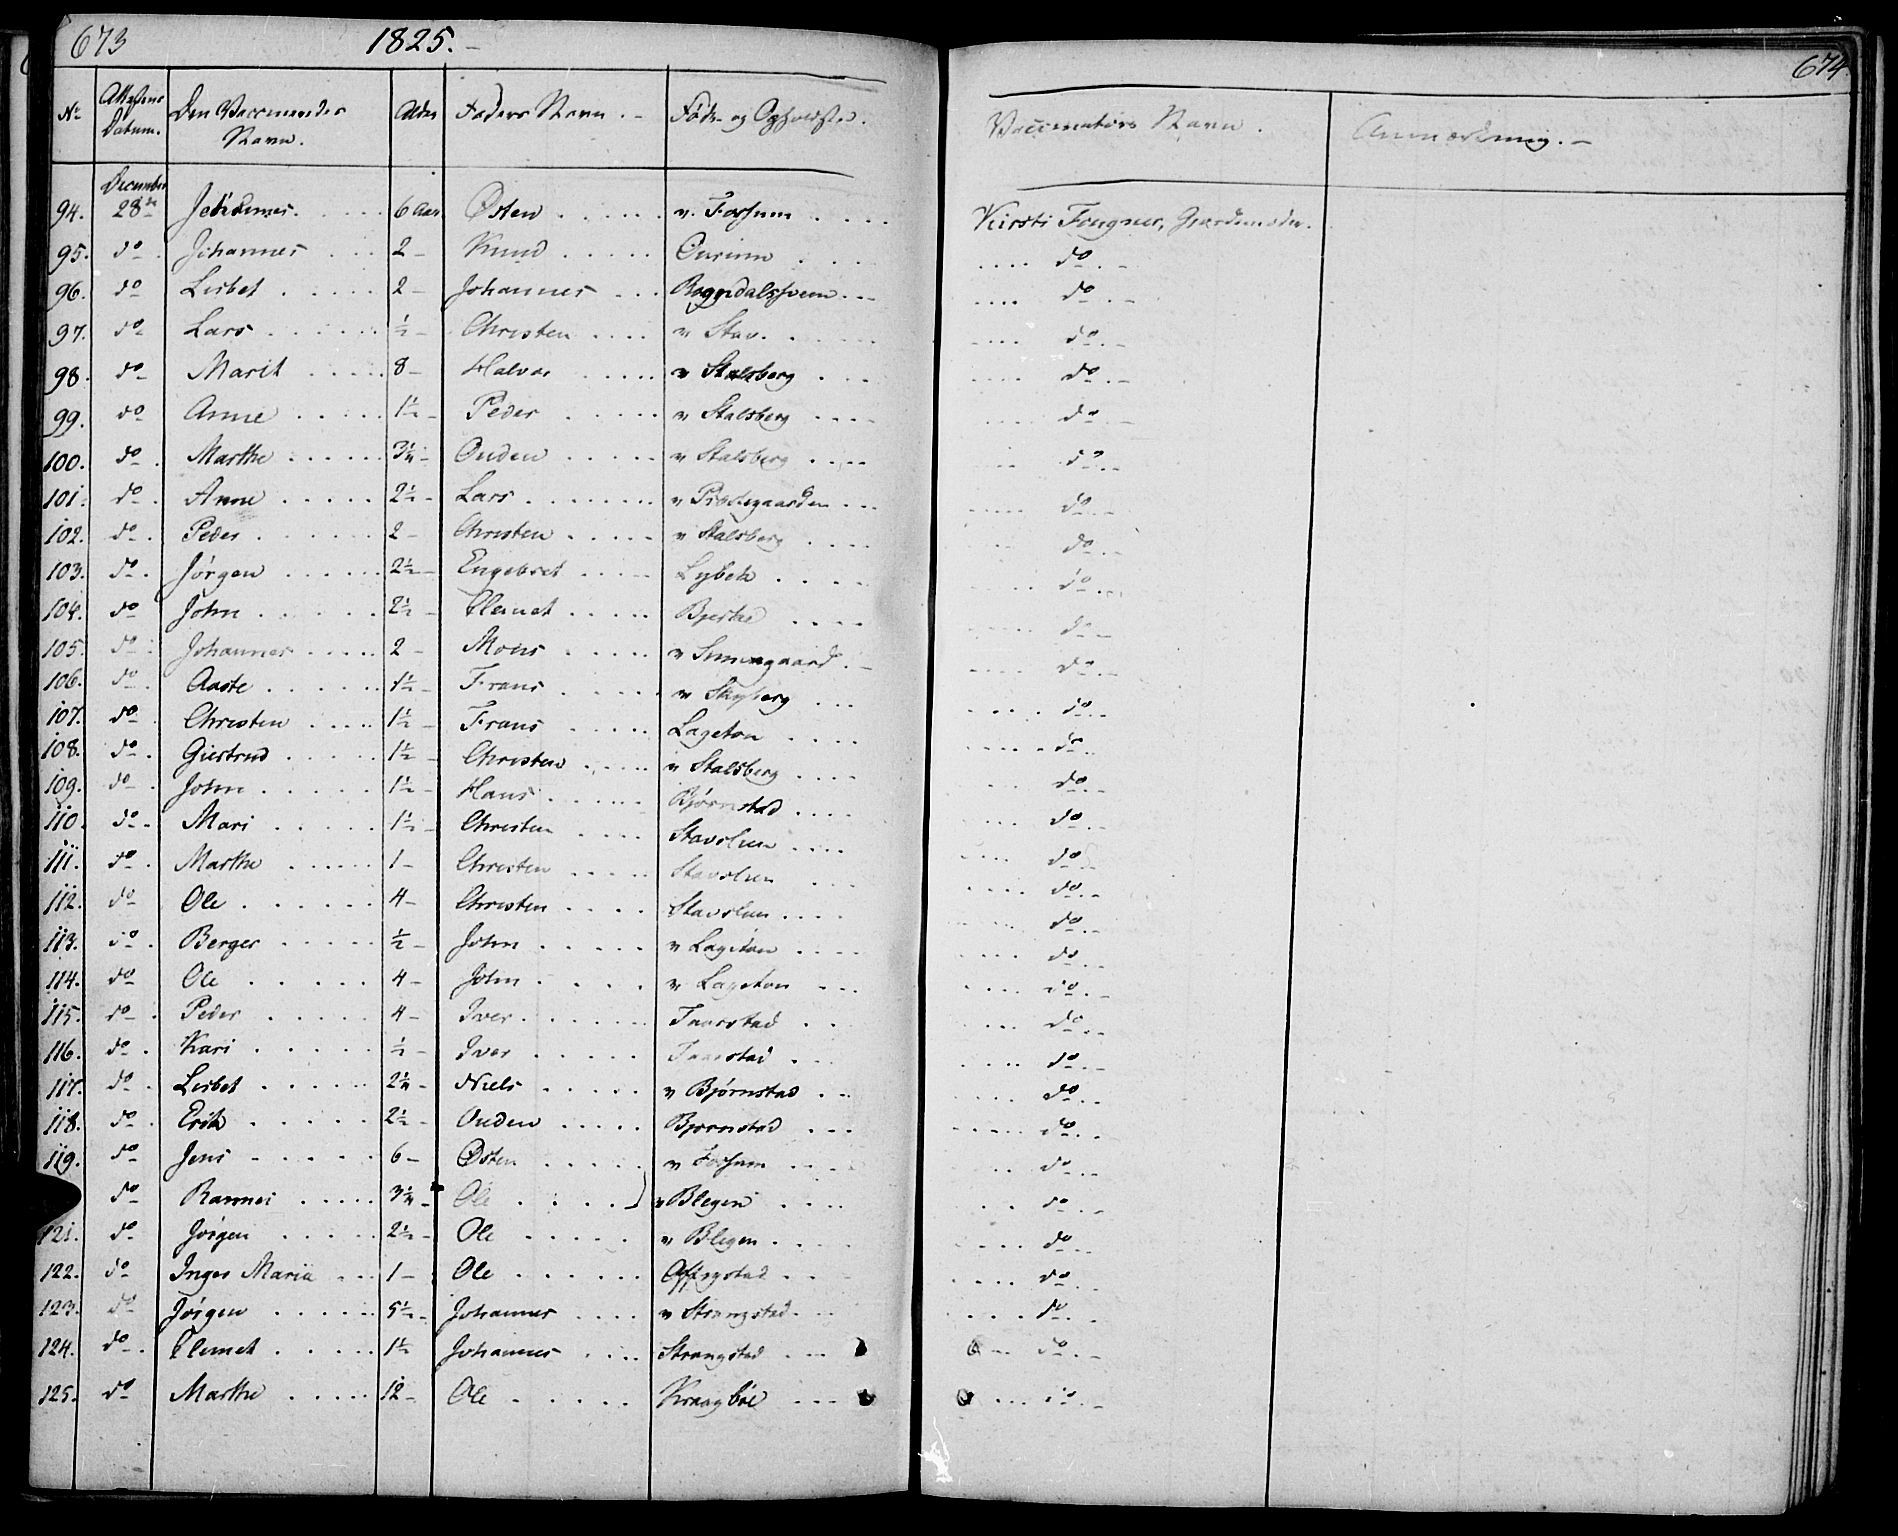 673 1825. –
No Attestens Datum. Den Vaccineredes Navn. Alder Faders Navn. – Føde- og Opholdsted. Vaccinators Navn. Anmærkning. –
674
December
94. 28de 6 Aar Østen v. Forsum Kirsti Fougner, Giordemoder.
95. do Johannes 2 – Knud do. –
96. do Lisbet 2 – Johannes do. –
97. do Lars ½ – Christen v Stav. do. –
98. do Marit 8 – Halvor v Stalsberg do. –
99. do Anne 1½ – Peder v Stalsberg do. –
100. do Marthe 3¼ – Ouden v Stalsberg do. –
101. do Anne 2½ – Lars v Præstegaarden do. –
102. do Peder 2 – Christen v Stalsberg do. –
103. do Jørgen 2½ – Engebret Lybek do. –
104. do John 2½ – Clemet Bjerke do –
105. do Johannes 2 – Mons do. –
106. do Aaste 1½ – Frans v do. –
107. do Christen 1½ – Frans Lageton do. –
108. do Giertrud 1½ – Christen v Stalsberg do. –
109. do John 1½ – Hans Bjørnstad do. –
110. do Mari 1½ – Christen Stavslien do. –
111. do Marthe 1 – Christen Stavslien do. –
112. do Ole 4 – Christen Stavslien do. –
113. do Berger ½ – John v Lageton do. –
114. do Ole 4 – John v Lageton do. –
115. do Peder 4 – Iver Taarstad do. –
116. do Kari ½ – Iver Taarstad do. –
117. do Lisbet 2¼ – Niels v Bjørnstad do. –
118. do Erik 2½ – Ouden Bjørnstad do. –
119. do Jens 6 – Østen v Forsum do. –
do Rannei 3¼ – Ole v Blegen do. –
121. do Jørgen 2½ – Ole v Blegen do. –
122. do Inger Maria 1 – Ole Offigstad do. –
123. do Jørgen 5½ – Johannes v Strangstad do. –
124. do Clemet 1½ Johannes Strangstad do. –
125. do Marthe 12 – Ole Kraagbøe do. –